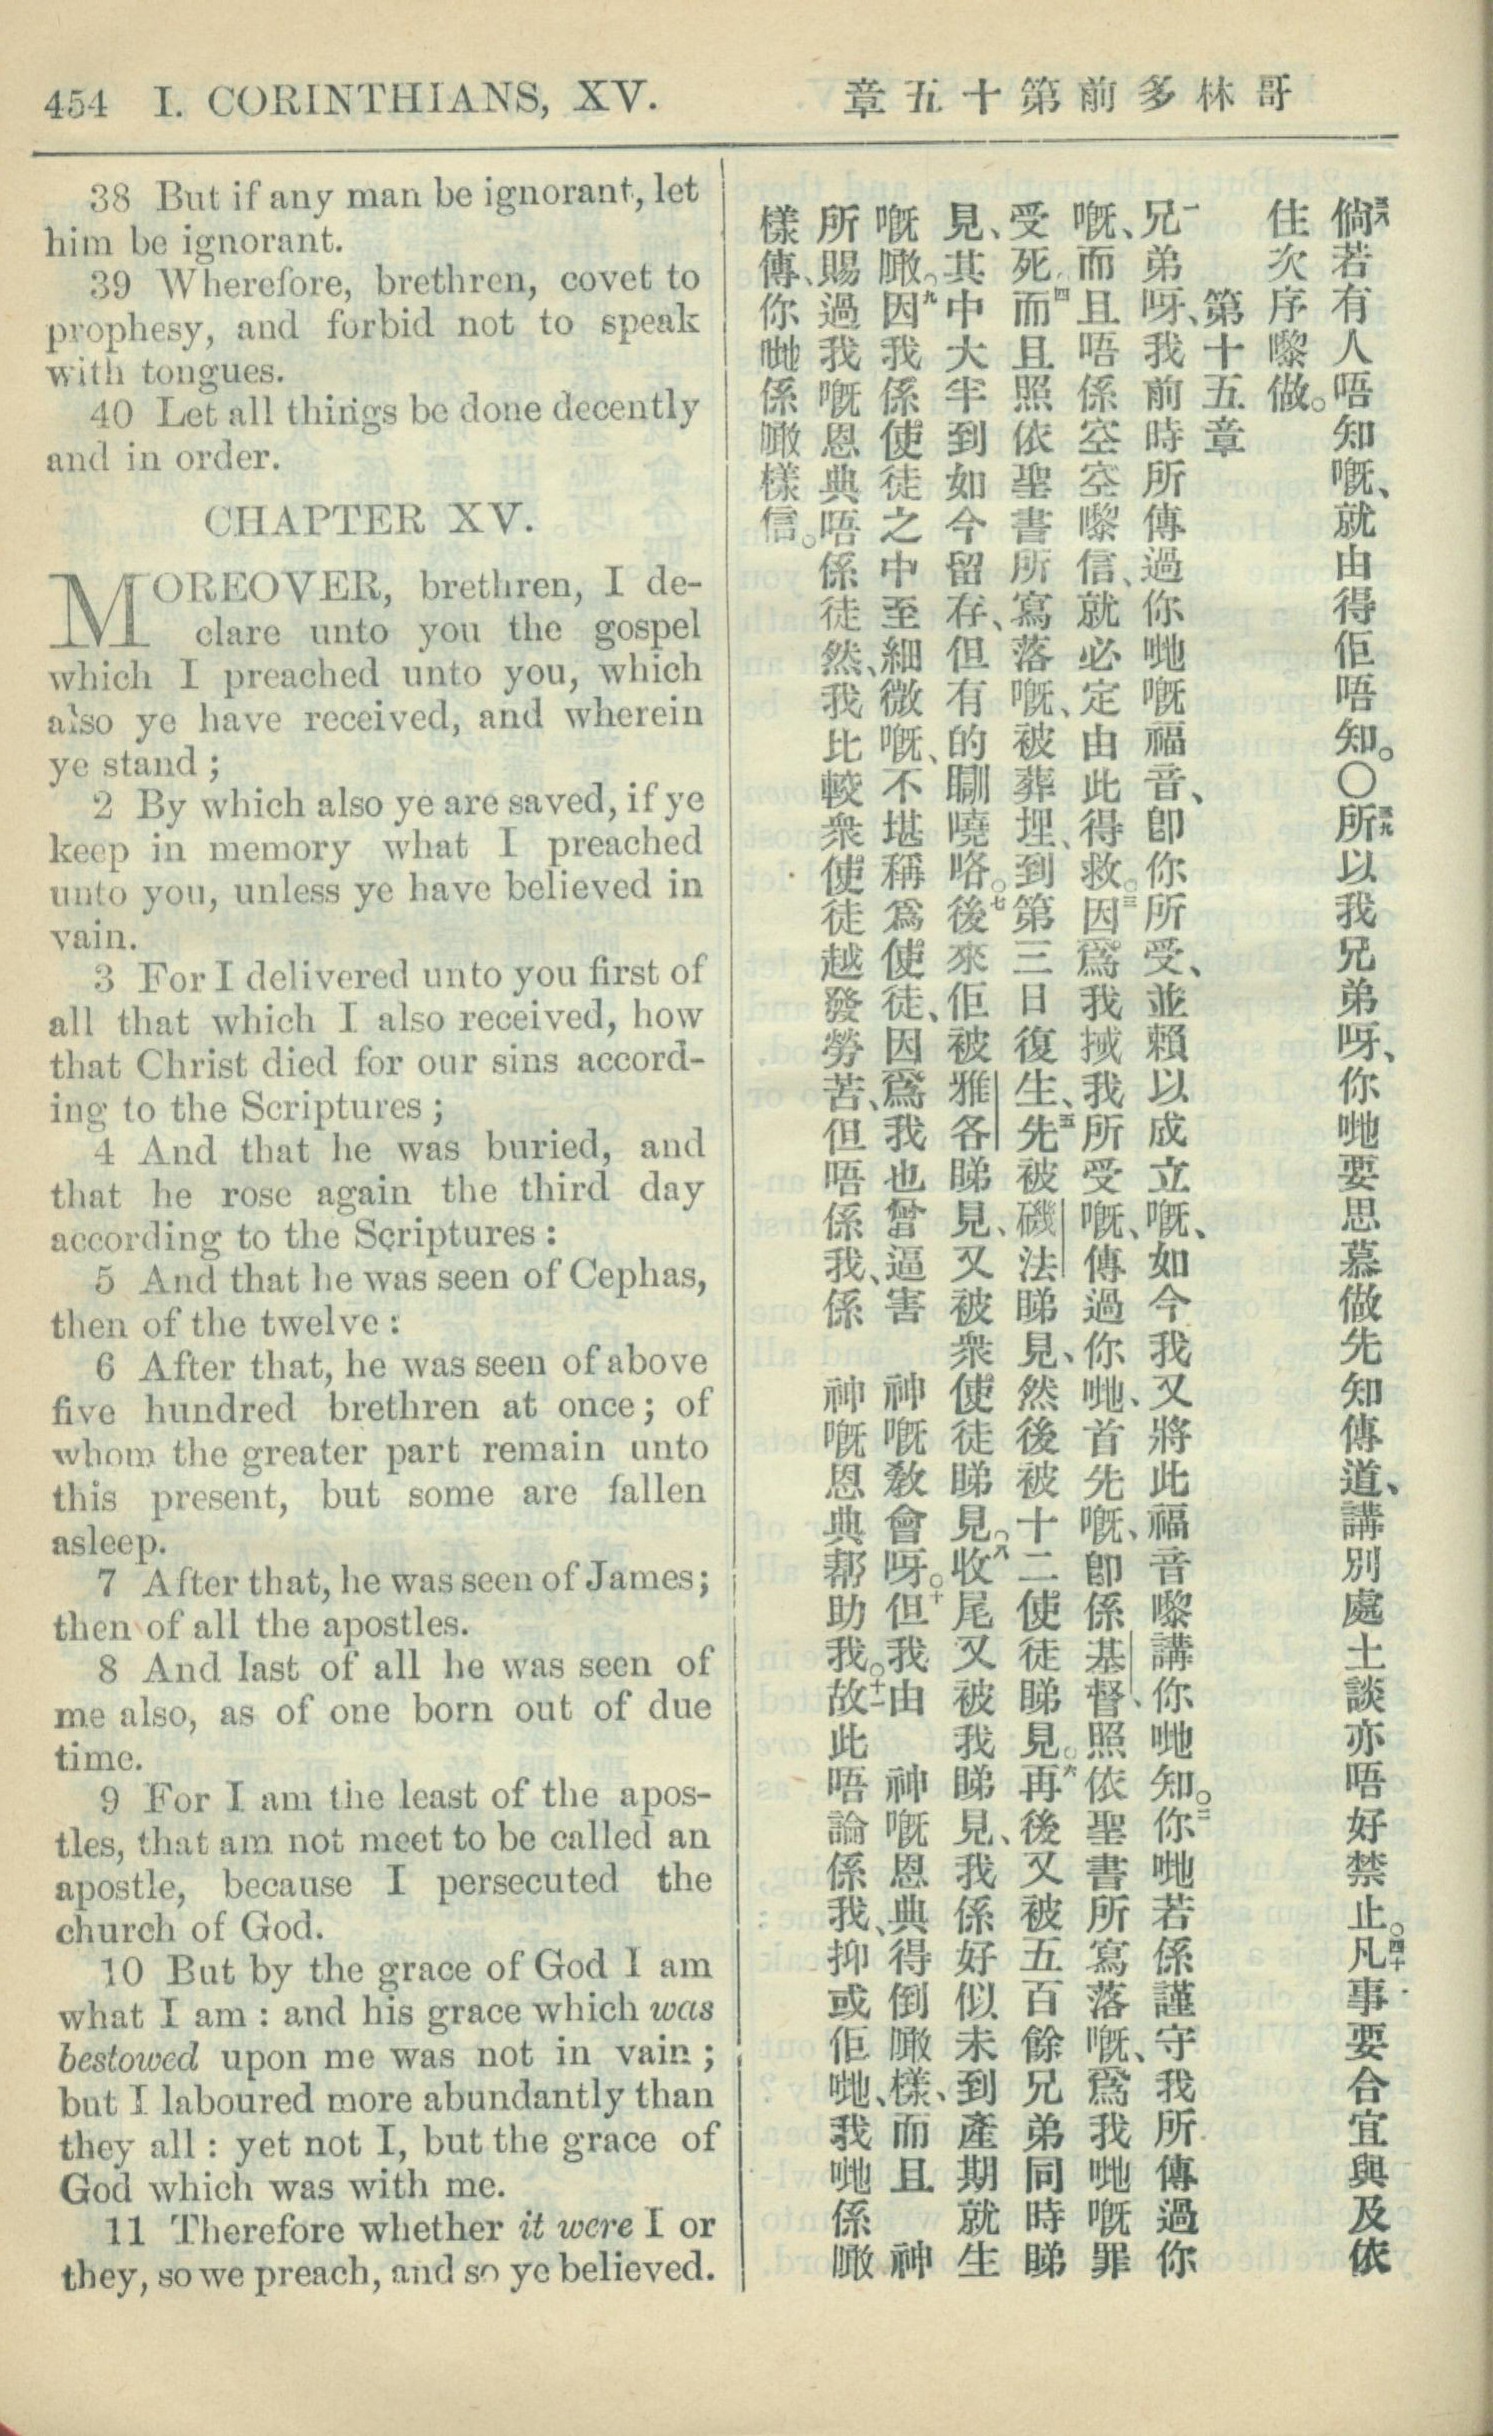 454 I. CORINTHIANS, XV.
哥林多前第十五章
38 But if any man be ignorant, let
him be ignorant.
39 Wherefore, brethren, covet to
prophesy, and forbid not to speak
with tongues.
40 Let all things be done decently
and in order.
CHAPTER XV.
MOREOVER, brethren, I de-
clare unto you the gospel
which I preached unto you, which
also ye have received, and wherein
ye stand;
2 By which also ye are saved, if ye
keep in memory what I preached
unto you, unless ye have believed in
vain.
3 For I delivered unto you first of
all that which I also received, how
that Christ died for our sins accord-
ing to the Scriptures;
4 And that he was buried, and
that he rose again the third day
according to the Scriptures:
5 And that he was seen of Cephas,
then of the twelve:
6 After that, he was seen of above
five hundred brethren at once; of
whom the greater part remain unto
this present, but some are fallen
asleep.
7 After that, he was seen of James;
then of all the apostles.
8 And last of all he was seen of
me also, as of one born out of due
time.
9 For I am the least of the apos-
tles, that am not meet to be called an
apostle, because I persecuted the
church of God.
10 But by the grace of God I am
what I am: and his grace which was
bestowed upon me was not in vain;
but I laboured more abundantly than
they all: yet not I, but the grace of
God which was with me.
11 Therefore whether it were I or
they, so we preach, and so ye believed.
三八倘若有人唔知嘅、就由得佢唔知。〇三九所以我兄弟呀、你哋要思慕做先知傳道、講別處土談亦唔好禁止。四十凡事要合宜與及依
住次序嚟做。
第十五章
一兄弟呀、我前時所傳過你哋嘅福音、卽你所受、並賴以成立嘅、如今我又將此福音嚟講你哋知。二你哋若係謹守我所傳過你
嘅、而且唔係空空嚟信、就必定由此得救。三因爲我搣我所受嘅、傳過你哋、首先嘅、卽係基督、照依聖書所寫落嘅、爲我哋嘅罪
受死。四而且照依聖書所寫落嘅、被葬埋、到第三日復生、五先被磯法睇見、然後被十二使徒睇見。六再後又被五百餘兄弟同時睇
見、其中大半到如今留存、但有的瞓曉咯。七後來佢被雅各睇見、又被衆使徒睇見。八收尾又被我睇見、我係好似未到產期就生
嘅噉。九因我係使徒之中至細微嘅、不堪稱爲使徒、因爲我也曾逼害 神嘅教會呀。十但我由 神嘅恩典得倒噉樣、而且 神
所賜過我嘅恩典唔係徒然、我比較衆使徒越發勞苦、但唔係我、係 神嘅恩典幫助我。十一故此唔論係我、抑或佢哋、我哋係噉
樣傳、你哋係噉樣信。